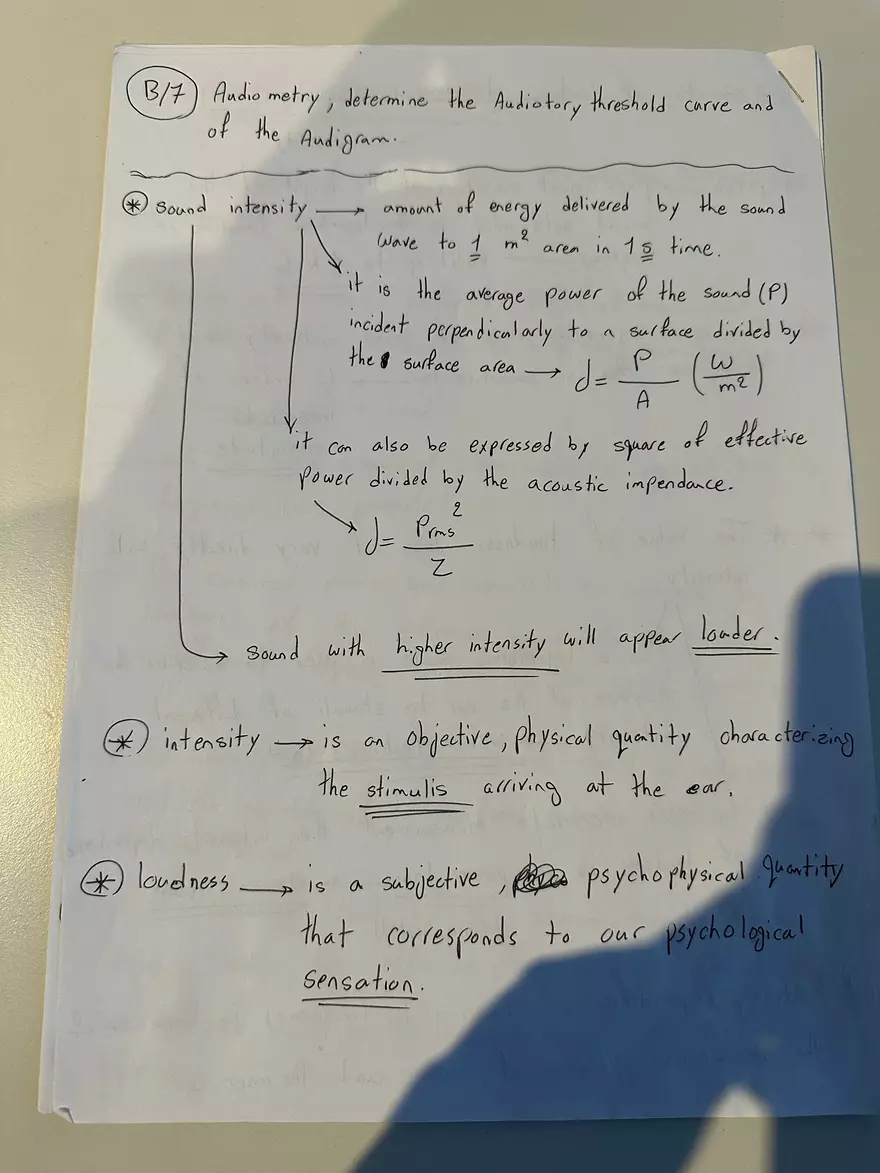 B/7 Audio metry, determine the Audiotory threshold curve and
of the Audigram.
* Sound intensity → amount of energy delivered by the sound
wave to 1 m² area in 1 s time.
it is the average power of the sound (P)
incident perpendicularly to a surface divided by
the surface area → J = P/A (W/m²)
it can also be expressed by square of effective
power divided by the acoustic impendance.
J = Prms²/Z
Sound with higher intensity will appear louder.
* intensity → is an objective, physical quantity characterizing
the stimulis arriving at the ear.
* loudness → is a subjective, psychophysical quantity
that corresponds to our psychological
sensation.